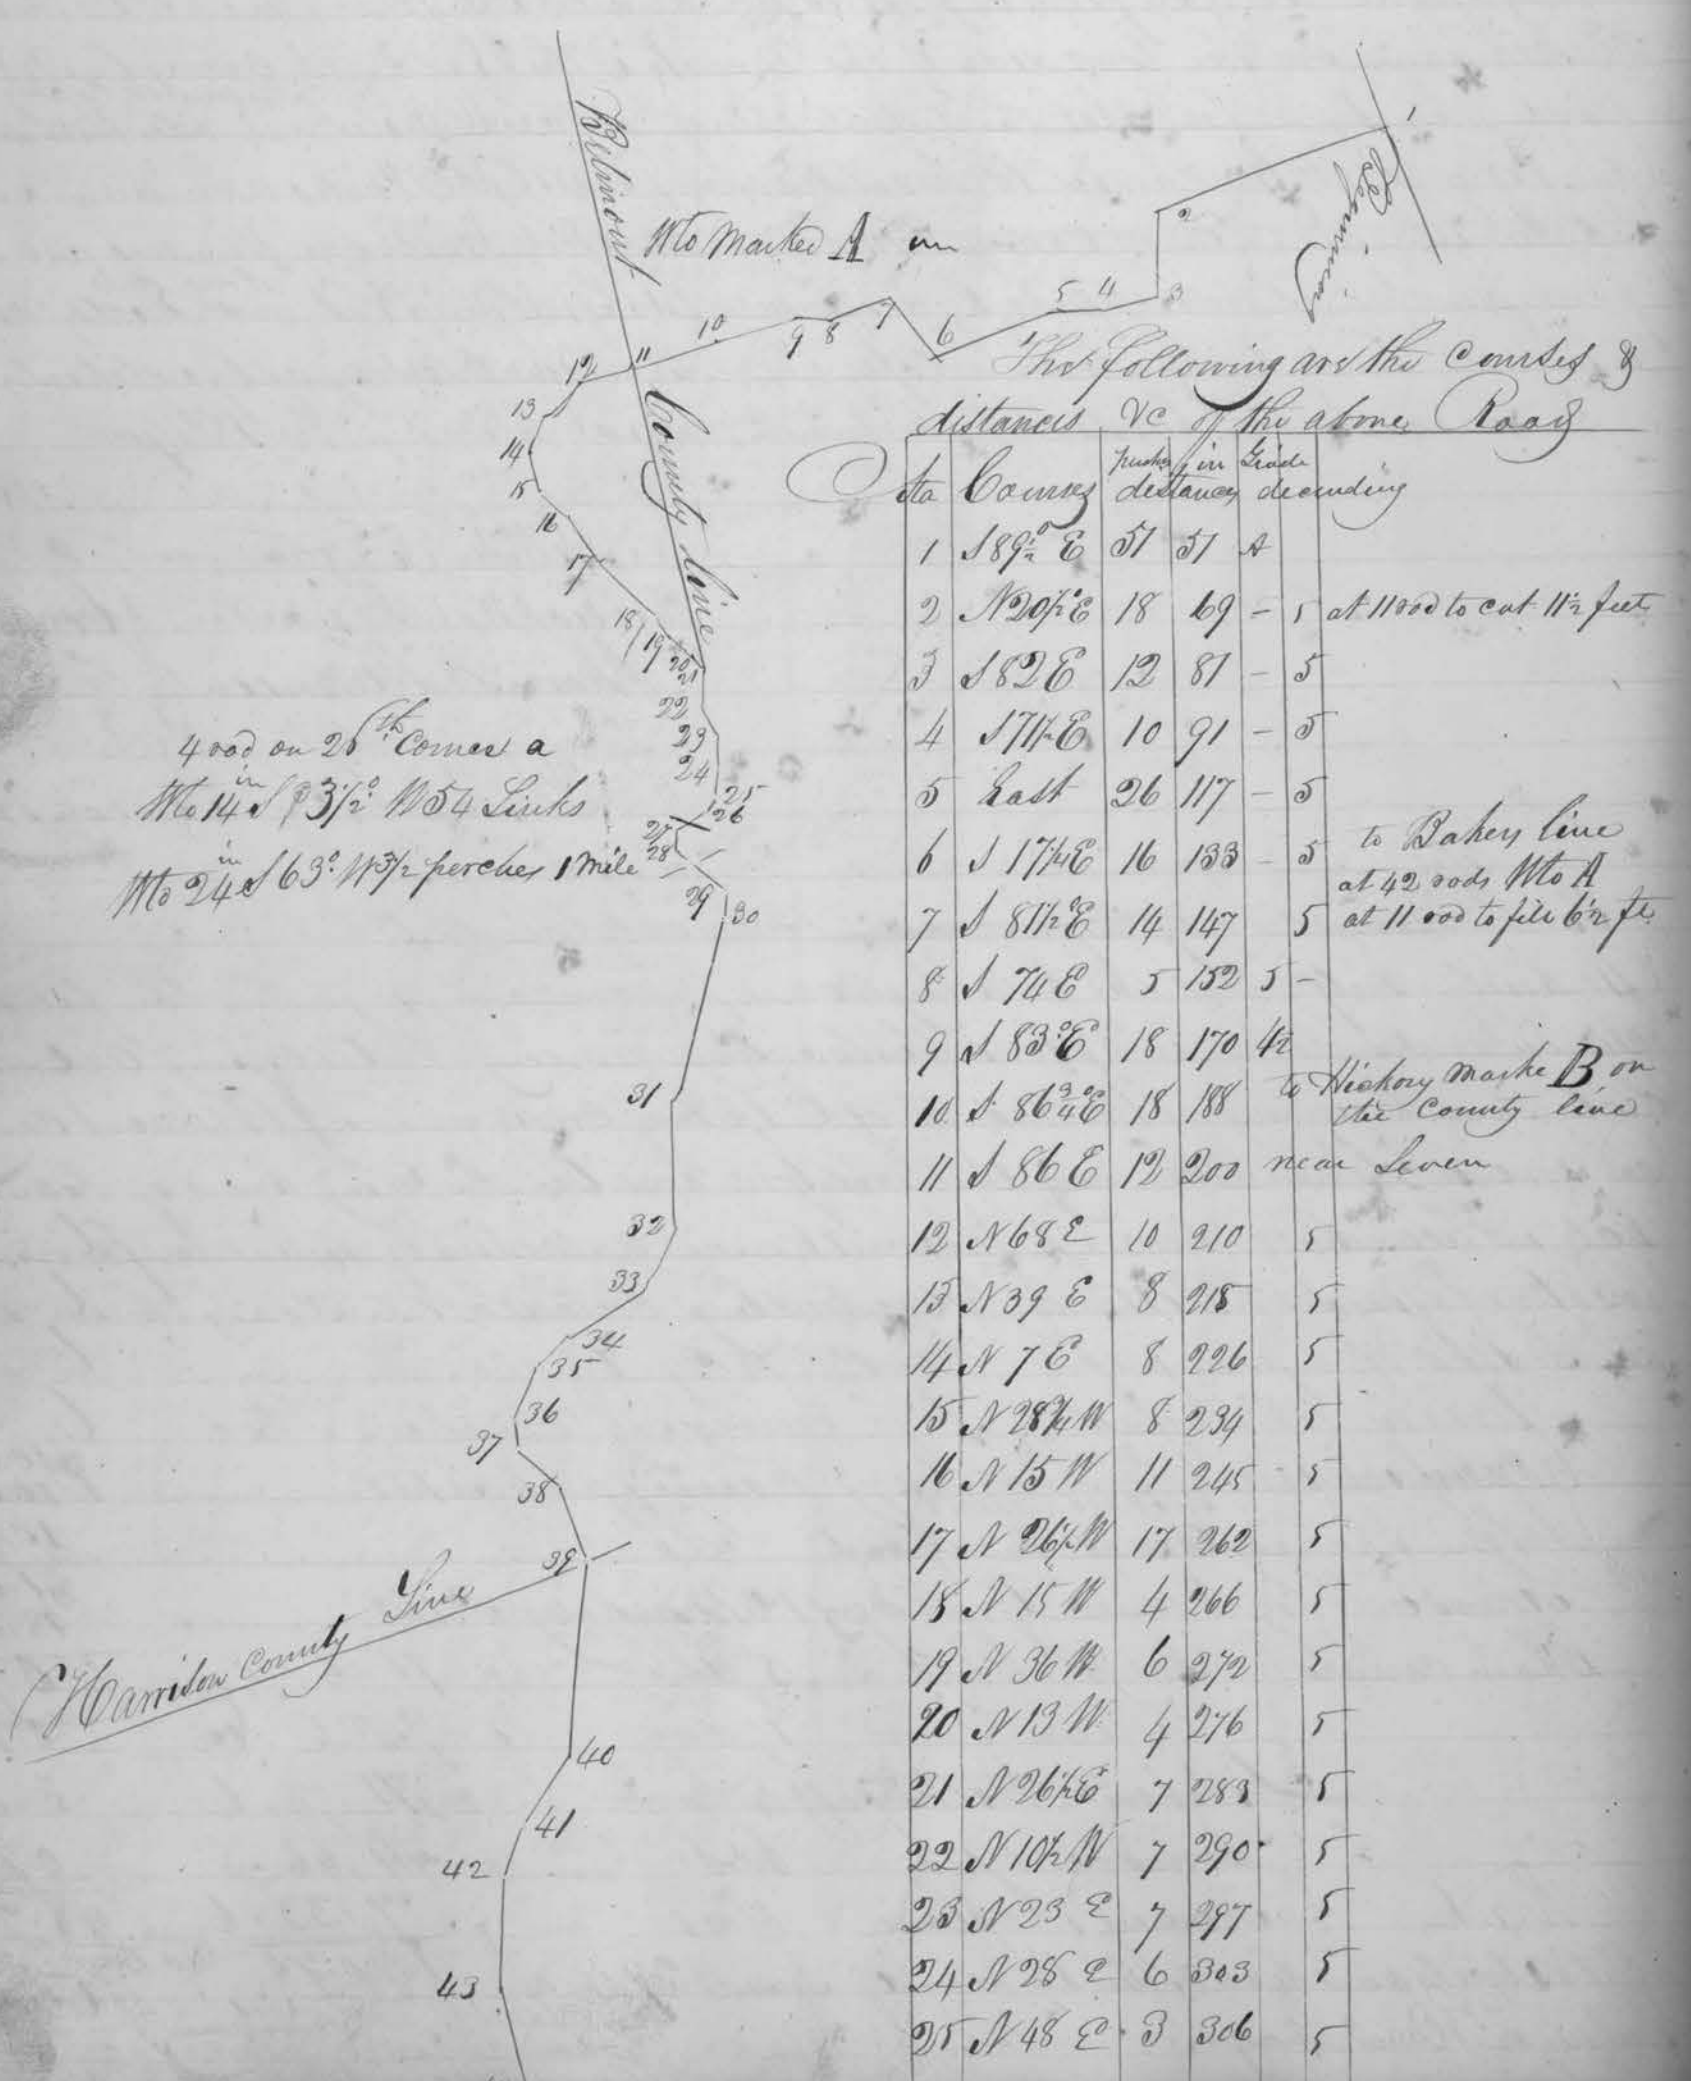 Belmont
County line
Wto Marked A on
Begining
1
2
3
4
5
6
7
8
9
10
11
12
13
14
15
16
17
18
19
20
21
22
23
24
25
26
27
28
29
30
31
32
33
34
35
36
37
38
39
40
41
42
43
4 rod on 26th comes a
Wto 14 in S 3½° W 54 Links
Wto 24 in S 63° W 3½ perches 1 Mile
Harrison County Line
The following are the Courses &
distances &c of the above Road
Sta Courses distances in Grade decending
1 S 89½° E 51 51 A
2 N 20½° E 18 69 – 5 at 11 rod to cut 11½ feet
3 S 82 E 12 81 – 5
4 S 71½ E 10 91 – 5
5 East 26 117 – 5
6 S 17¼ E 16 133 – 5 to Bakers line
at 42 rods Wto A
7 S 81½° E 14 147 5 at 11 rod to fill 6½ ft
8 S 74 E 5 152 5 –
9 S 83° E 18 170 4½
10 S 86¾° E 18 188 to Hickory marke B on
the County line
11 S 86 E 12 200 near Leven
12 N 68 E 10 210 5
13 N 39 E 8 218 5
14 N 7 E 8 226 5
15 N 28¾ W 8 234 5
16 N 15 W 11 245 5
17 N 26½ W 17 262 5
18 N 15 W 4 266 5
19 N 36 W 6 272 5
20 N 13 W 4 276 5
21 N 26½ E 7 283 5
22 N 10½ W 7 290 5
23 N 23 E 7 297 5
24 N 28 E 6 303 5
25 N 48 E 3 306 5